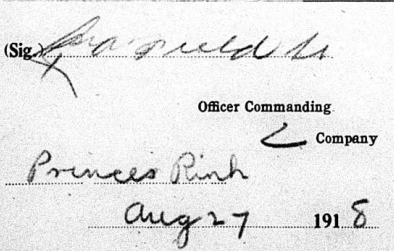 (Sig.)
Officer Commanding
Company
Princess Rink
Aug 27 1918